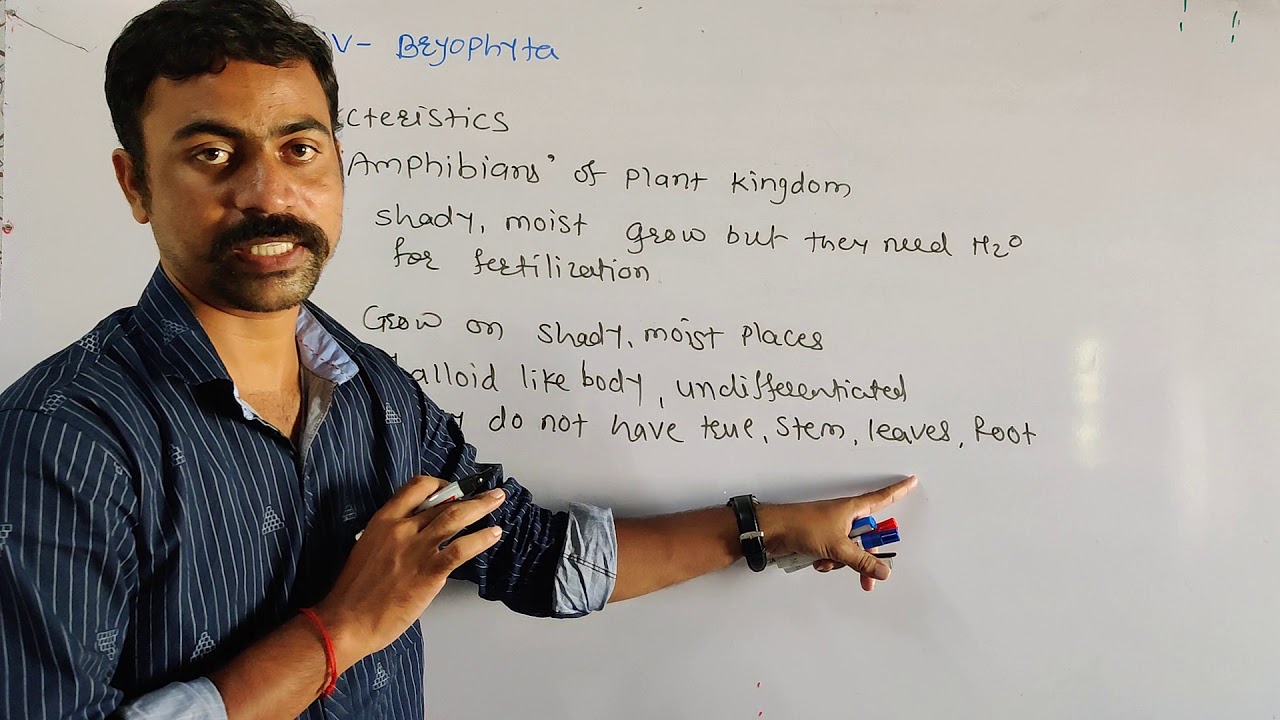 IV- Bryophyta
cteristics
'Amphibians' of plant kingdom
shady, moist grow but they need H2O
for fertilization
Grow on shady, moist places
alloid like body, undifferentiated
y do not have true, stem, leaves, Root